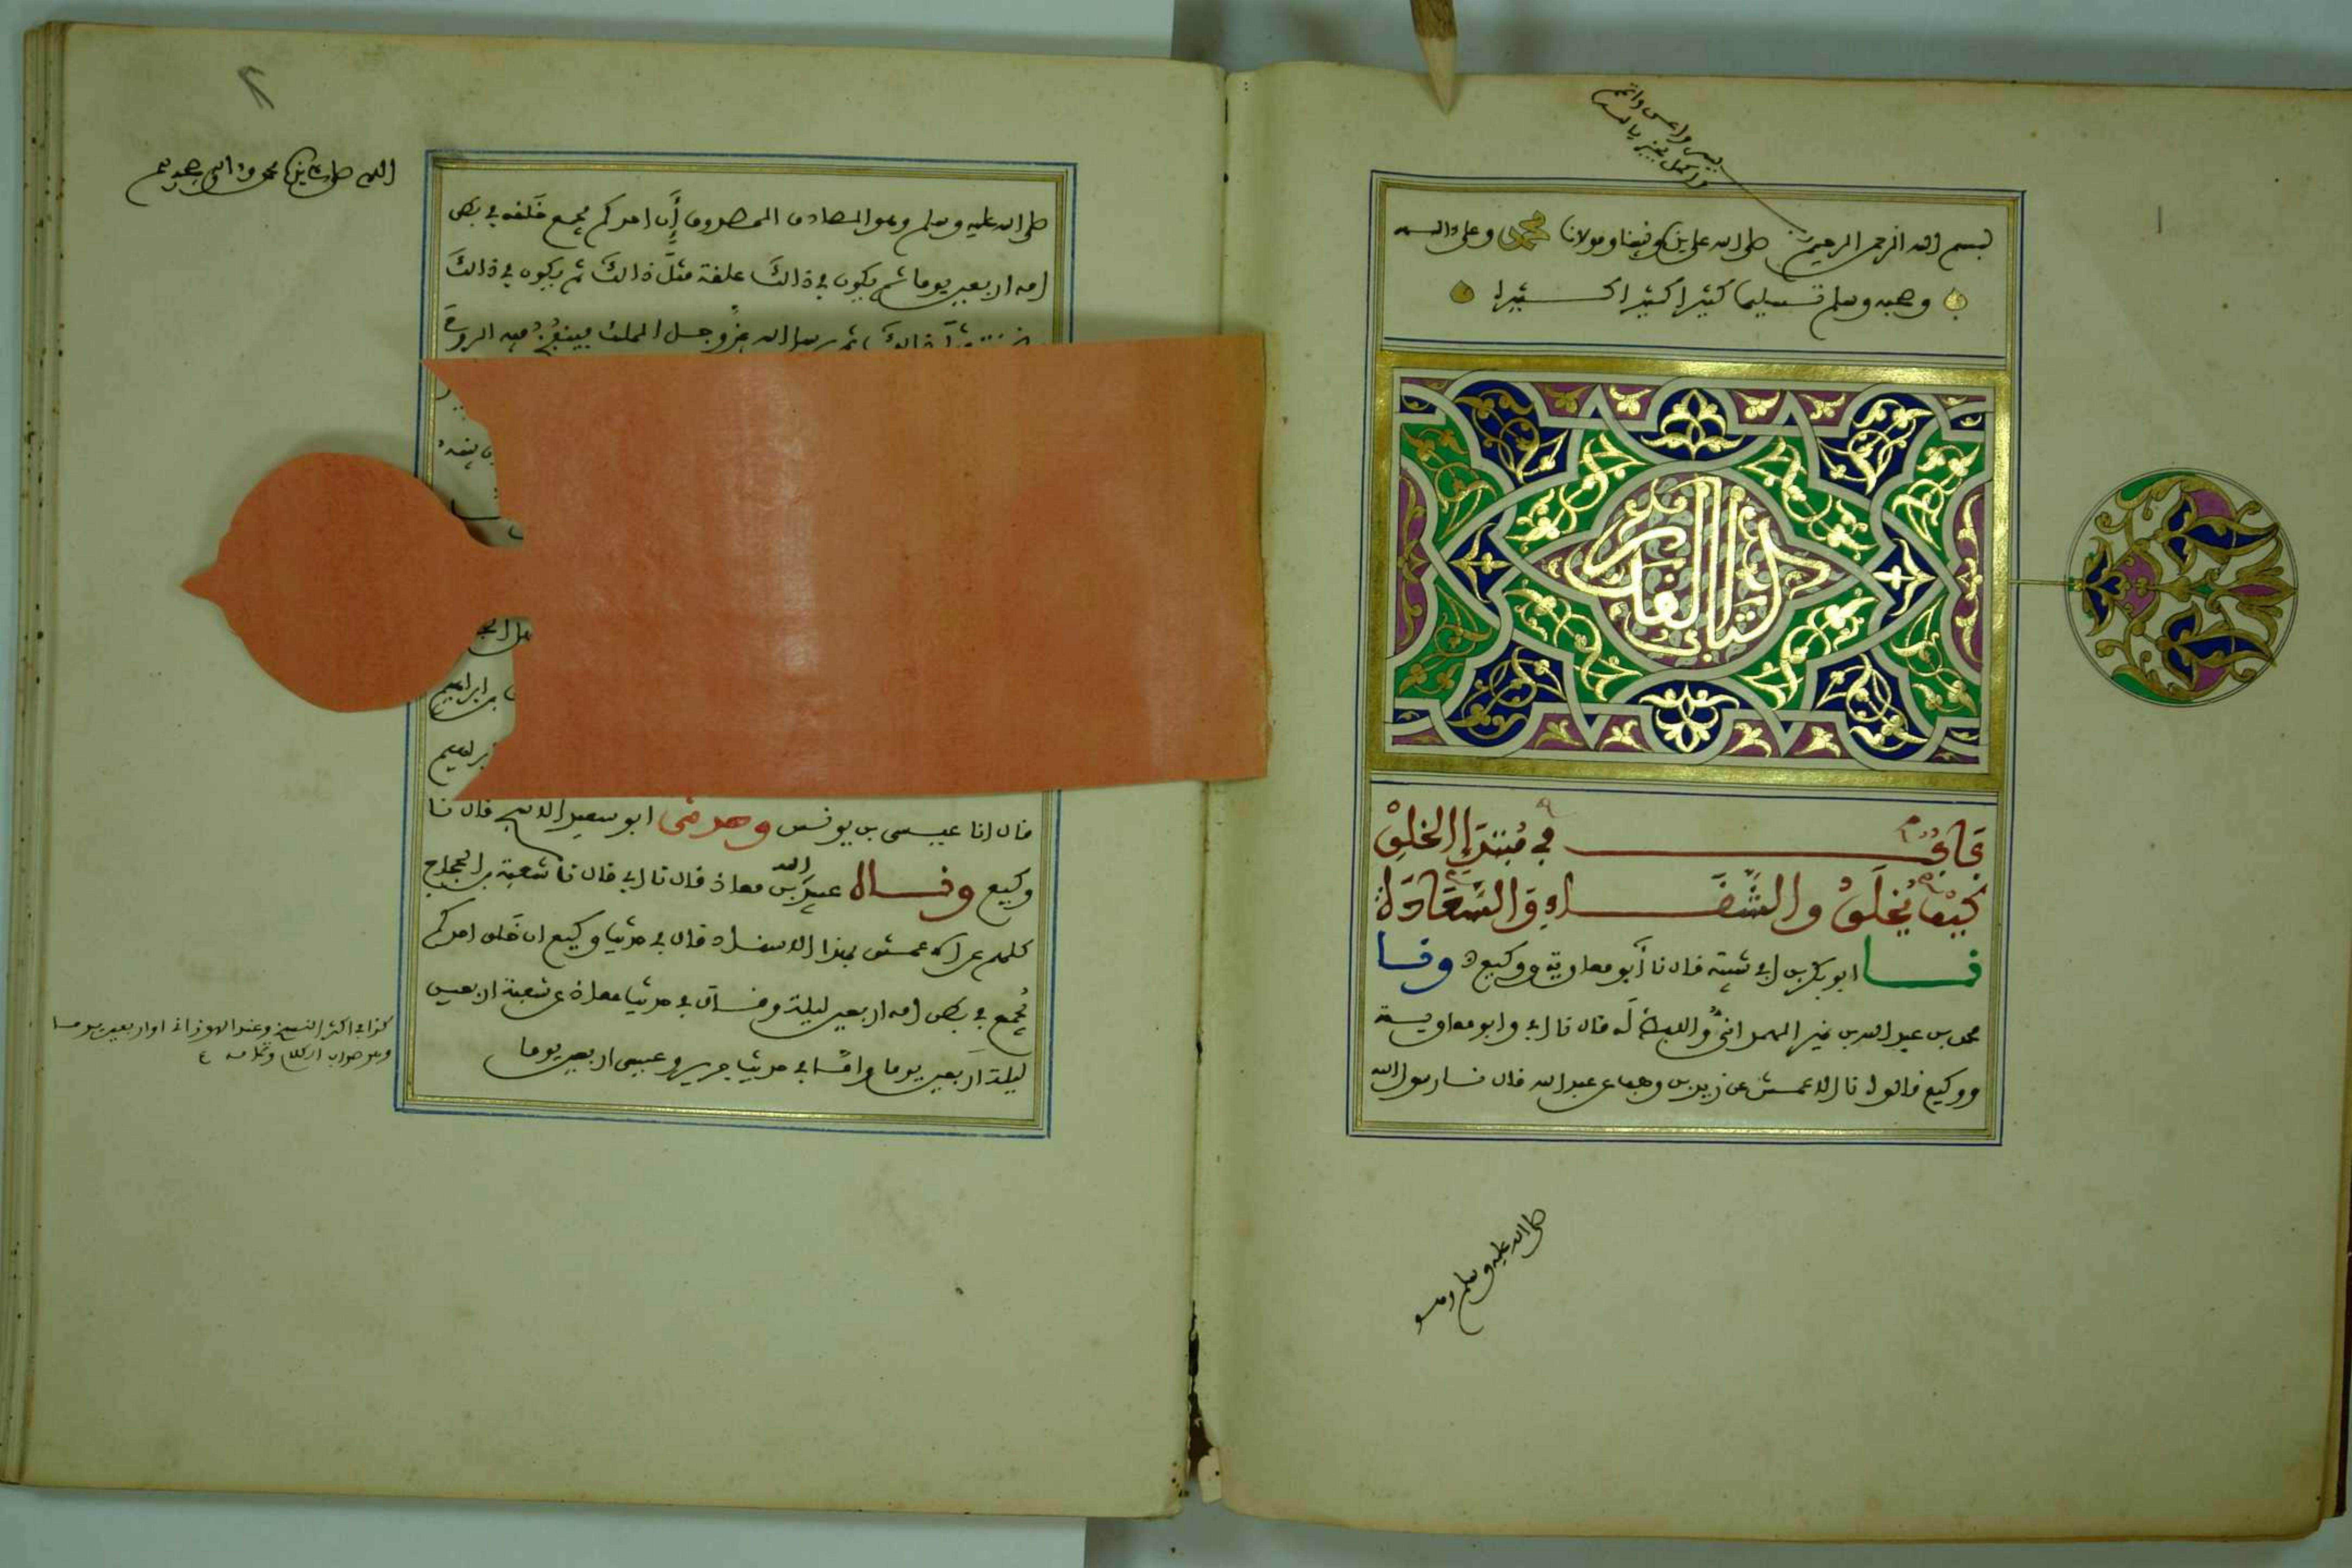 يسر واعن واختم
واكمل بخير يا كريم
بسم الله الرحمن الرحيم صلى الله على سيدنا ونبينا ومولانا محمد وعلى ءاله
وصحبه وسلم تسليما كثيرا كثيرا كثيرا
كتاب القدر
باب في مبتدإ الخلق
كيف يخلق والشقاء والسعادة
نا ابو بكر بن ابي شيبة قال نا أبو معاوية ووكيع ح ونا
محمد بن عبد الله بن نمير الهمداني واللفظ له قال نا ابي وابو معاوية
ووكيع قالوا نا الاعمش عن زيد بن وهب عن عبد الله قال نا رسول الله
صلى الله عليه وسلم وهو
صلى الله عليه وسلم وهو الصادق المصدوق إن احدكم يجمع خلقه في بطن
امه اربعين يوما ثم يكون في ذالك علقة مثل ذالك ثم يكون في ذالك
مضغة مثل ذالك ثم يرسل الله عز وجل الملك فينفخ فيه الروح
بن ابراهيم
ابراهيم
قال انا عيسى بن يونس وحدثني ابو سعيد الاشج قال نا
وكيع وقال عبيد الله بن معاذ قال نا ابي قال نا شعبة بن الحجاج
كلهم عن الاعمش بهذا الاسناد قال في حديث وكيع ان خلق احدكم
يجمع في بطن امه اربعين ليلة وقال في حديث معاذ عن شعبة اربعين
ليلة اربعين يوما واما في حديث جرير وعيسى اربعين يوما
كذا في اكثر النسخ وعند الهوزاني او اربعين يوما
وهو صواب الكلام